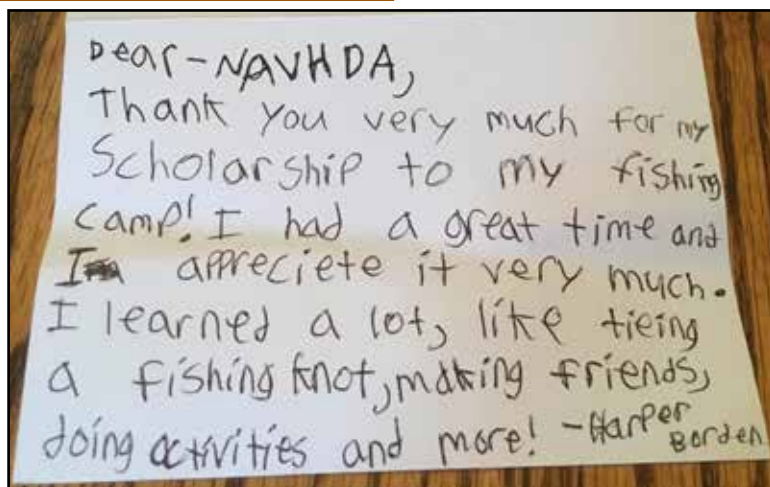 Dear-NAVHDA,
Thank you very much for my
Scholarship to my fishing
camp! I had a great time and
I appreciete it very much.
I learned a lot, like tieing
a fishing knot, making friends,
doing activities and more! -Harper
Borden